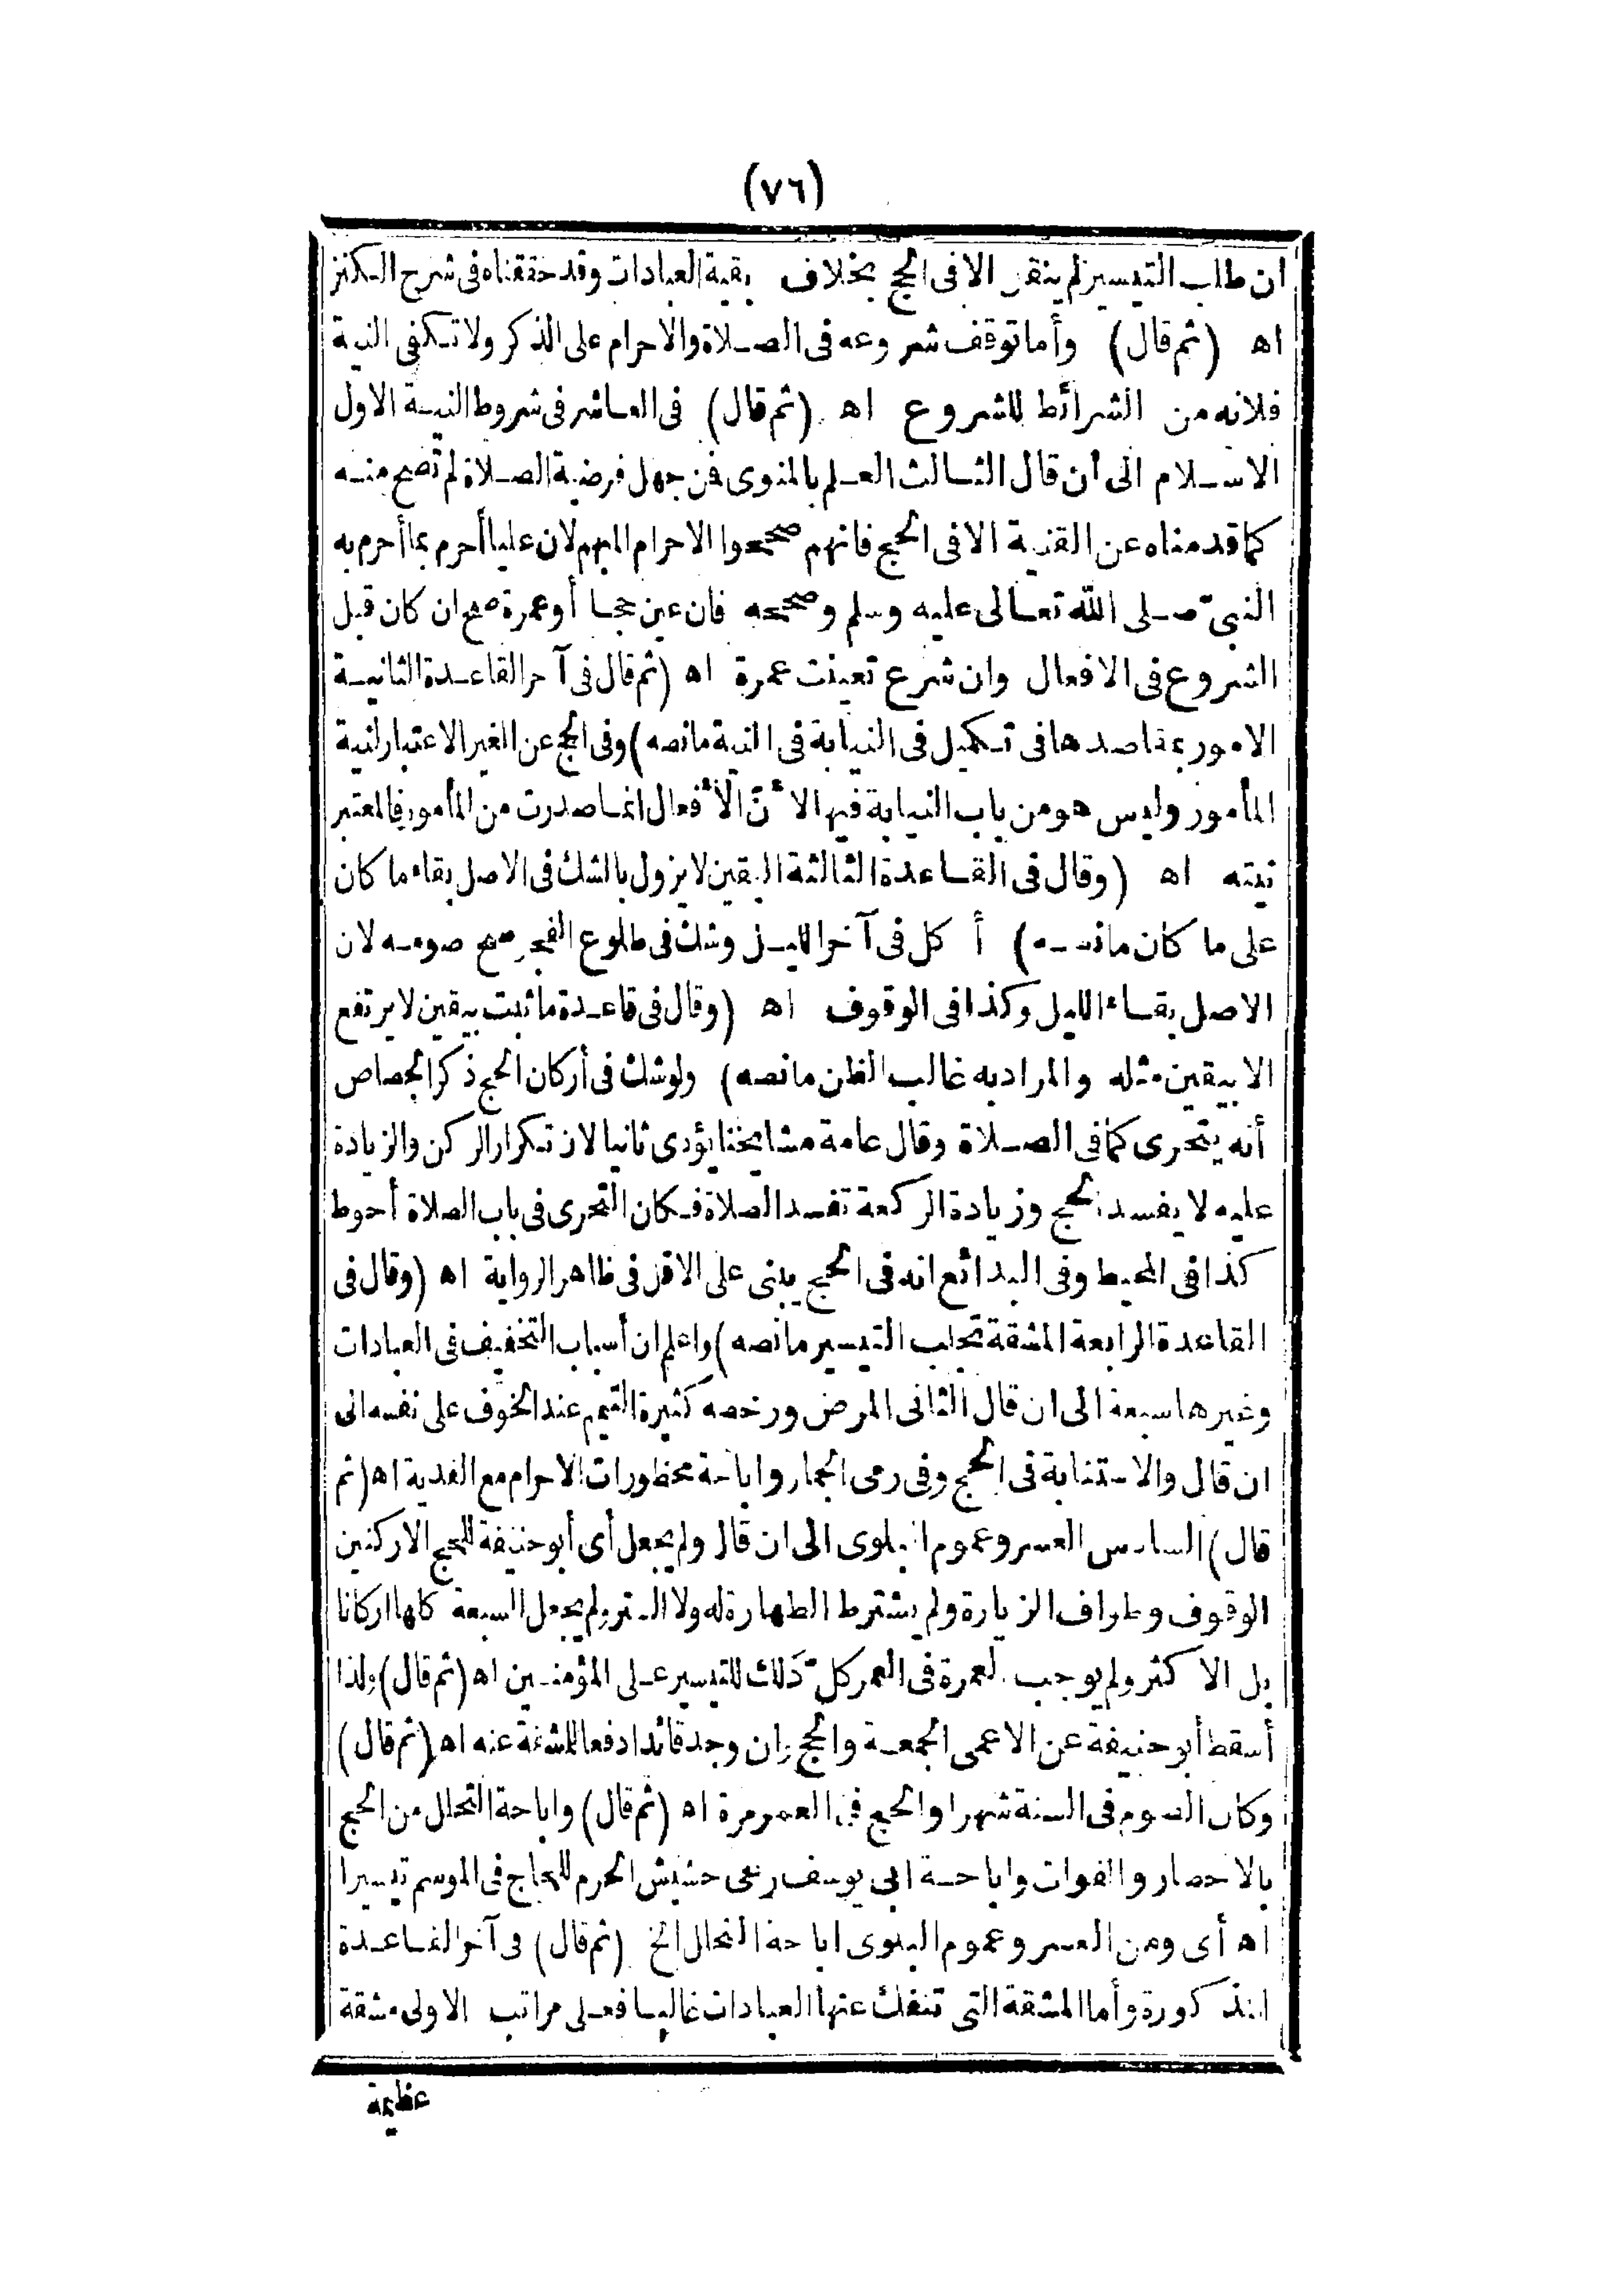 (٧٦)
ان طلب التيسير لم ينقل الا فى الحج بخلاف بقية العبادات وقد حققناه فى شرح الكنز
اه (ثم قال) وأما توقف شروعه فى الصلاة والاحرام على الذكر ولا تكفى النية
فلانه من الشرائط للشروع اه (ثم قال) فى العاشر فى شروط النية الاول
الاسلام الى أن قال الثالث العلم بالمنوى فن جهل فرضية الصلاة لم تصح منه
كما قدمناه عن القنية الا فى الحج فانهم صححوا الاحرام المبهم لان عليا أحرم بما أحرم به
النبىّ صلى الله تعالى عليه وسلم وصححه فان عين حجا أو عمرة صح ان كان قبل
الشروع فى الافعال وان شرع تعينت عمرة اه (ثم قال فى آخر القاعدة الثانية
الامور بمقاصدها فى تكميل فى النيابة فى النية مانصه) وفى الحج عن الغير الاعتبار لنية
المأمور وليس هو من باب النيابة فيها لأنّ الأفعال انما صدرت من المأمور فالمعتبر
نيته اه (وقال فى القاعدة الثالثة اليقين لا يزول بالشك فى الاصل بقاء ما كان
على ما كان مانصه) أكل فى آخر الليل وشك فى طلوع الفجر صح صومه لان
الاصل بقاء الليل وكذا فى الوقوف اه (وقال فى قاعدة ما ثبت بيقين لا يرتفع
الا بيقين مثله والمراد به غالب الظن مانصه) ولو شك فى أركان الحج ذكر الجصاص
أنه يتحرى كما فى الصلاة وقال عامة مشايخنا يؤدى ثانيا لان تكرار الركن والزيادة
عليه لا يفسد الحج وزيادة الركعة تفسد الصلاة فكان التحرى فى باب الصلاة أحوط
كذا فى المحيط وفى البدائع انه فى الحج يبنى على الاقل فى ظاهر الرواية اه (وقال فى
القاعدة الرابعة المشقة تجلب التيسير مانصه) واعلم ان أسباب التخفيف فى العبادات
وغيرها سبعة الى ان قال الثانى المرض ورخصه كثيرة التيمم عند الخوف على نفسه الى
ان قال والاستنابة فى الحج وفى رمى الجمار واباحة محظورات الاحرام مع الفدية اه (ثم
قال) السادس العسر وعموم البلوى الى ان قال ولم يجعل أى أبو حنيفة للحج الا ركنين
الوقوف وطواف الزيارة ولم يشترط الطهارة له ولا الستر ولم يجعل السبعة كلها اركانا
بل الاكثر ولم يوجب العمرة فى العمر كلّ ذلك للتيسير على المؤمنين اه (ثم قال) ولذا
أسقط أبو حنيفة عن الاعمى الجمعة والحج وان وجد قائدا دفعا للمشقة عنه اه (ثم قال)
وكان الصوم فى السنة شهرا والحج فى العمر مرة اه (ثم قال) واباحة التحلل من الحج
بالاحصار والفوات واباحة ابى يوسف رعى حشيش الحرم للحاج فى الموسم تيسيرا
اه أى ومن العسر وعموم البلوى اباحة التحلل الخ (ثم قال) فى آخر القاعدة
المذكورة وأما المشقة التى تنفك عنها العبادات غالبا فعلى مراتب الاولى مشقة
عظيمة